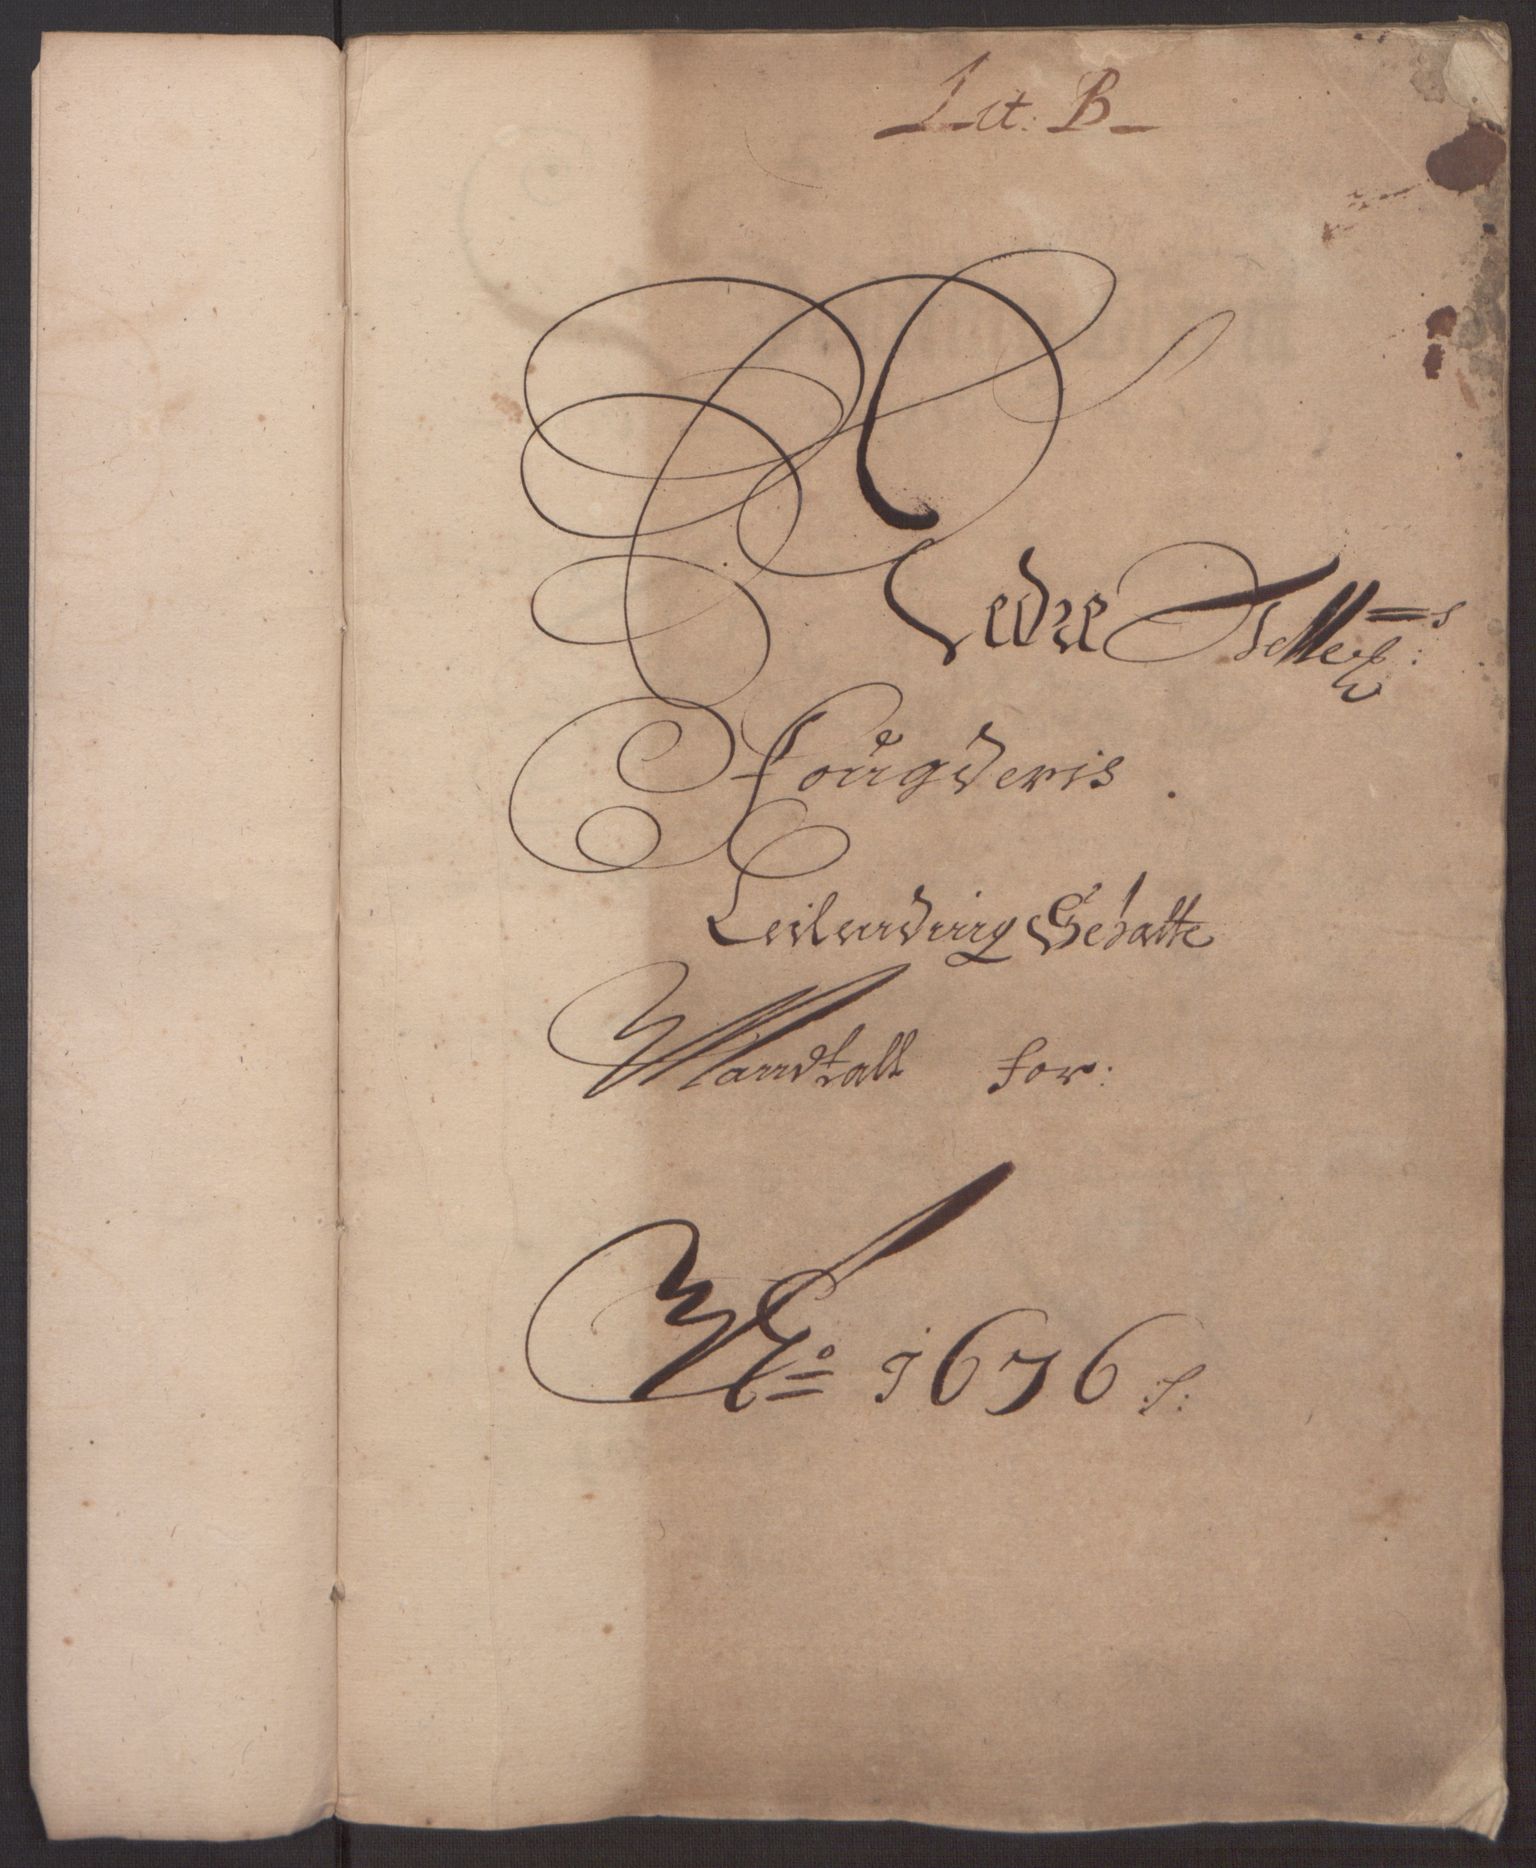 Lit: B
Nedre Tellem:s
Fougderis.
Leilending Schatte
Mandtall for:
A̱o 1676 :/: